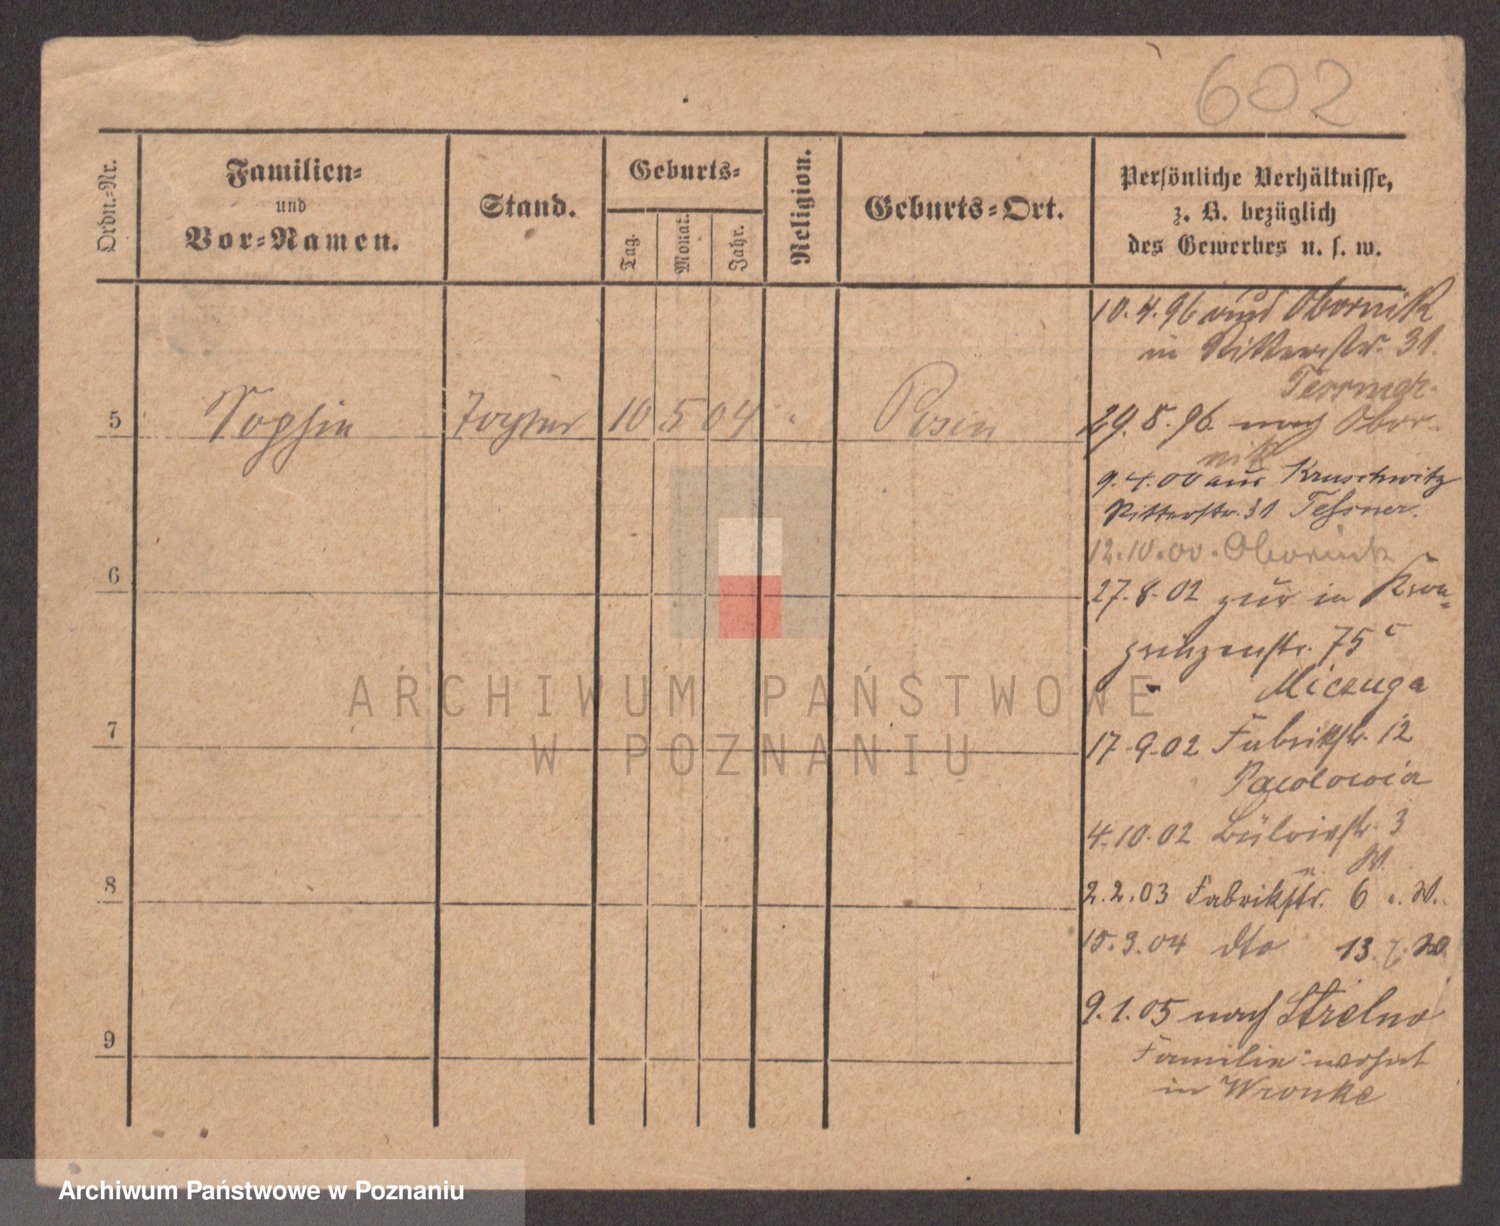 602
Ordn.-Nr.
Familien-
und
Vor-Namen.
Stand.
Geburts-
Tag.
Monat.
Jahr.
Religion.
Geburts-Ort.
Persönliche Verhältnisse,
z. B. bezüglich
des Gewerbes u. s. w.
10.4.96 aus Obornik
in Ritterstr. 31.
5 Sophie Tochter 10 5 04 Posen
29.8.96. nach Obor-
nik
9.4.00 aus Kruschwitz
Ritterstr. 31 Tessner.
12.10.00. Obornik
6
27.8.02 zur in Kron-
prinzenstr. 75c
Miczuga
7
17.9.02 Fabrikstr. 12
4.10.02 Bülowstr. 3
W.
8
2.2.03 Fabrikstr. 6 W.
15.3.04 dto 13 W
9.1.05 nach Strelno
9
Familie wohnt
in Wronke
ARCHIWUM PAŃSTWOWE
W POZNANIU
Archiwum Państwowe w Poznaniu